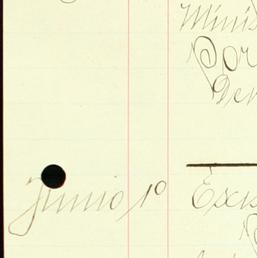 Minis
Por
Den
junio 1º
Exis